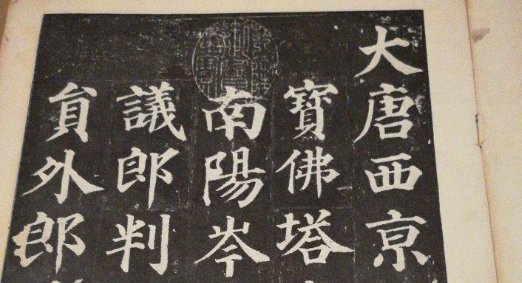 大唐西京
寶佛塔
南陽岑
議郎判
貟外郎